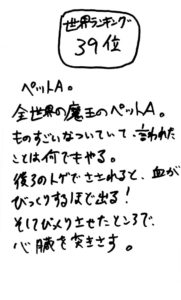 世界ランキング
39位
ペットA。
全世界の魔王のペットA。
ものすごいなついていて、言われた
ことは何でもやる。
後ろのトゲでさされると、血が
びっくりするほど出る！
そしてびっくりさせたところで、
心臓を突きさす。